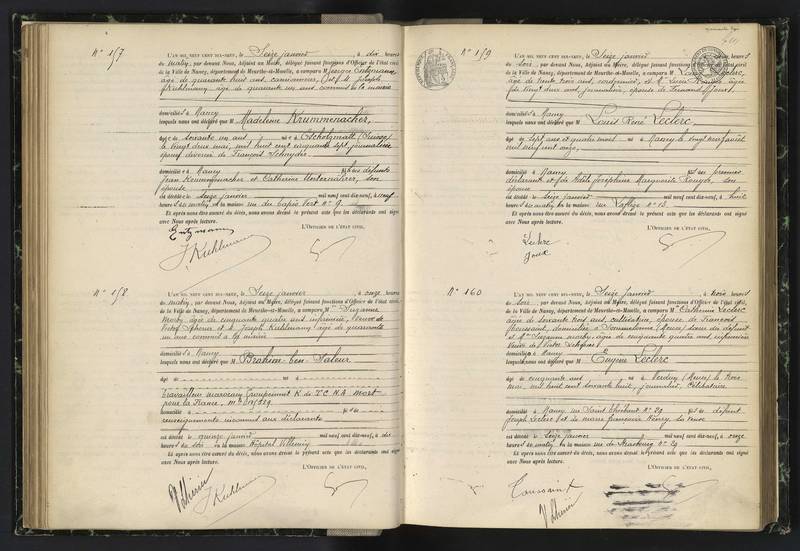 N° 157
L'AN MIL NEUF CENT DIX-NEUF, le Seize janvier, à dix heures
du matin, par devant Nous, Adjoint au Maire, délégué faisant fonctions d'Officier de l'état civil
de la Ville de Nancy, département de Meurthe-et-Moselle, a comparu M
Kuhlmann, âgé de quarante un ans commis à la mairie
domiciliés à Nancy
lesquels nous ont déclaré que M Madeleine Krummenacher,
âgée de soixante un ans née à Escholzmatt (Suisse)
le vingt deux mai, mil huit cent cinquante sept, journalière
épouse divorcée de François Schnyder
domiciliée à Nancy fille des défunts
Jean Krummenacher et Catherine son
épouse
est décédée le Seize janvier mil neuf cent dix-neuf, à neuf
heures du matin en la maison rue du Tapis Vert n° 9.
Et après nous être assuré du décès, nous avons dressé le présent acte que les déclarants ont signé
avec Nous après lecture.
L'OFFICIER DE L'ÉTAT CIVIL,
J Kuhlmann
N° 158
L'AN MIL NEUF CENT DIX-NEUF, le Seize janvier à onze heures
du matin, par devant Nous, Adjoint au Maire, délégué faisant fonctions d'Officier de l'état civil
de la Ville de Nancy, département de Meurthe-et-Moselle, a comparu Mme Suzanne
âgée de cinquante quatre ans infirmière, veuve de
Victor et M. Joseph Kuhlmann âgé de quarante
un ans commis à la mairie
domiciliés à Nancy
lesquels nous ont déclaré que M Brahim-ben-Saleur
âgé de né à
travailleur marocain
pour la France.
domicilié à fils de
renseignements inconnus aux déclarants
est décédé le quinze janvier mil neuf cent dix-neuf, à dix
heures du soir en la maison Hôpital Villemin
Et après nous être assuré du décès, nous avons dressé le présent acte que les déclarants ont signé
avec Nous après lecture.
L'OFFICIER DE L'ÉTAT CIVIL,
J Kuhlmann
N° 159
L'AN MIL NEUF CENT DIX-NEUF, le Seize janvier heures
du soir, par devant Nous, Adjoint au Maire, délégué faisant fonctions d'Officier de l'état civil
de la Ville de Nancy, département de Meurthe-et-Moselle, a comparu M Leclerc,
âgé de trente trois ans, cordonnier, et Mme Louise âgée
de vingt deux ans, journalière, épouse de Fernand
domiciliés à Nancy
lesquels nous ont déclaré que M Louis René Leclerc,
âgé de sept ans et quatre mois né à Nancy le vingt neuf août
mil neuf cent onze,
domicilié à Nancy fils du premier
déclarant et de Joséphine Marguerite son
épouse
est décédé le Seize janvier mil neuf cent dix-neuf, à huit
heures du matin en la maison rue n° 13
Et après nous être assuré du décès, nous avons dressé le présent acte que les déclarants ont signé
avec Nous après lecture.
L'OFFICIER DE L'ÉTAT CIVIL,
N° 160
L'AN MIL NEUF CENT DIX-NEUF, le Seize janvier à trois heures
du soir, par devant Nous, Adjoint au Maire, délégué faisant fonctions d'Officier de l'état civil
de la Ville de Nancy, département de Meurthe-et-Moselle, a comparu Mme Catherine Leclerc
âgée de soixante trois ans, épouse de François
Toussaint, domiciliée à (Meuse) soeur du défunt
et Mme Suzanne âgée de cinquante quatre ans, infirmière
veuve de Victor
domiciliée à Nancy
lesquels nous ont déclaré que M Eugène Leclerc
âgé de cinquante ans né à Verdun (Meuse) le trois
mai, mil huit cent soixante huit, journalier, célibataire
domicilié à Nancy, rue Saint n° 29 fils de défunt
Joseph Leclerc et de Marie Françoise sa veuve
est décédé le Seize janvier mil neuf cent dix-neuf, à onze
heures du matin en la maison rue de Strasbourg n° 29
Et après nous être assuré du décès, nous avons dressé le présent acte que les déclarants ont signé
avec Nous après lecture.
L'OFFICIER DE L'ÉTAT CIVIL,
Toussaint